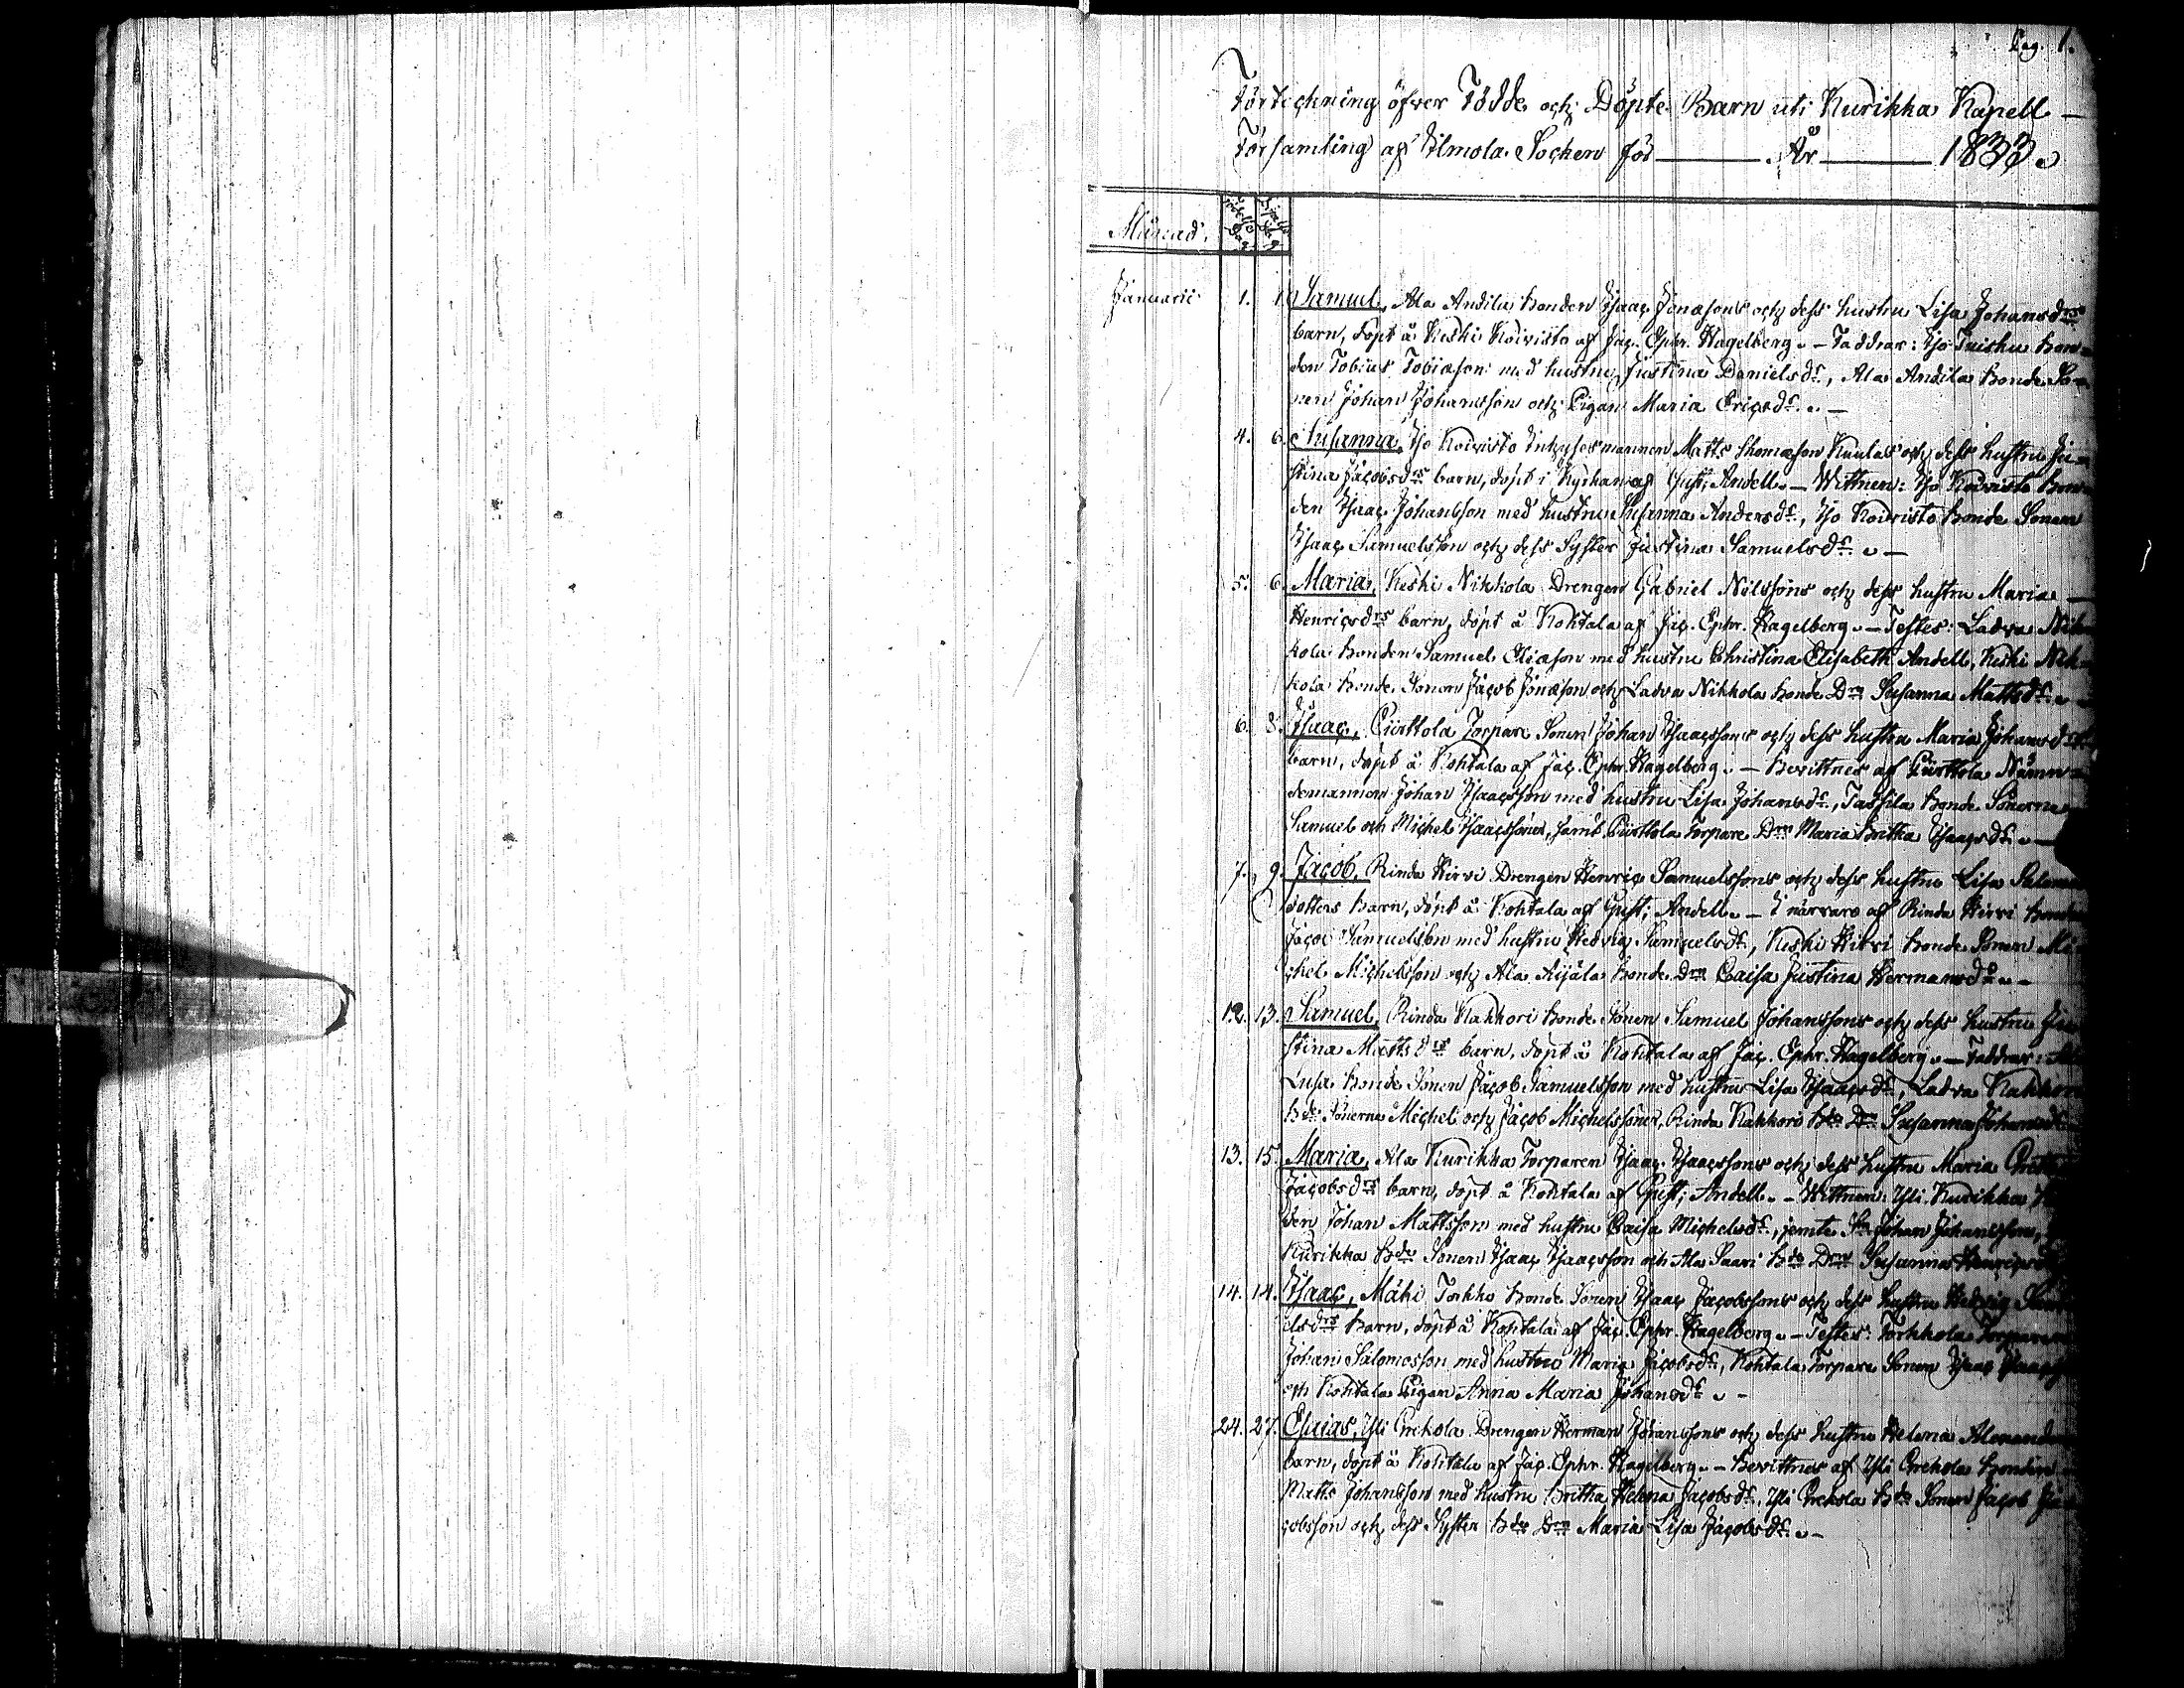 Pag. 1.
Förteckning öfver Födde och Döpte Barn uti Kurikka Kapell-
Församling af Ilmola Socken för År 1833.
Månad. Födelse Dag Döpelse Dag
Januarii 1. 1. Samuel, Ala Andila Bonden Isaac Jonæsons och dess hustru Lisa Johansdrs
barn, döpt å Keski Koivisto af Jac. Ephr. Hagelberg. - Faddrar: Iso Tuisku Bon-
den Tobias Tobiæson med hustru Justina Danielsdr, Ala Andila Bonde So-
nen Johan Johansson och Pigan Maria Ericsdr. -
4. 6. Susanna, Iso Koivisto Inhysesmannen Matts Thomæson Kuulas och dess hustru Ju-
stina Jacobsdrs barn, döpt i Kyrkan af Gust: Andell. - Wittnen: Iso Koivisto Bon-
den Isaac Johansson med hustru Susanna Andersdr, Iso Koivisto Bonde Sonen
Isaac Samuelsson och dess Syster Justina Samuelsdr. -
5. 6. Maria, Keski Nikkola Drengen Gabriel Nilssons och dess hustru Maria
Henricsdrs barn, döpt å Kohtala af Jac. Ephr. Hagelberg. - Testes: Ladva Nik-
kola Bonden Samuel Eliæson med hustru Christina Elisabeth Andell, Keski Nik-
kola Bonde Sonen Jacob Jonæson och Ladva Nikkola Bonde Drn Susanna Mattsdr.
6. 8. Isaac, Piirttola Torpare Sonen Johan Isaacssons och dess hustru Maria Johansdrs
barn, döpt å Kohtala af Jac. Ephr. Hagelberg. - Bevittnes af Piirttola Nämn-
demannen Johan Isaacsson med hustru Lisa Johansdr, Tassila Bonde Sönerna
Samuel och Michel Isaacssöner, samt Piirttola Torpare Drn Maria Britha Isaacsdr. -
7. 9. Jacob, Rinda Hirvi Drengen Henric Samuelssons och dess hustru Lisa
dotters Barn, döpt å Kohtala af Gust; Andell. - I närvaro af Rinda Hirvi
Jacob Samuelsson med hustru Hedvig Samuelsdr, Keski Hirvi Bonde Sonen Mi-
chel Michelsson och Ala Äijälä Bonde Drn Caisa Justina Hermansdr. -
12. 13. Samuel, Rinda Kakkori Bonde Sonen Samuel Johanssons och dess hustru Ju-
stina Mattsdrs barn, döpt å Kohtala af Jac. Ephr. Hagelberg. - Faddrar:
Lusa Bonde Sonen Jacob Samuelsson med hustru Lisa Isaacsdr, Ladva Kakkori
Bde Sönerna Michel och Jacob Michelssöner, Rinda Kakkori Bde Drn Susanna Johansdr
13. 15. Maria, Ala Kurikka Torparen Isaac Isaacssons och dess hustru Maria
Jacobsdrs barn, döpt å Kohtala af Gust; Andell. - Wittnen: Yli Kurikka
den Johan Mattsson med hustru Caisa Michelsdr, jemte Sn Johan Johansson,
Kurikka Bde Sonen Isaac Isaacsson och Ala Saari Bde Drn Susanna Henricsdr
14. 14. Isaac, Mäki Torkko Bonde Sonen Isaac Jacobssons och dess hustru Hedvig
elsdrs Barn, döpt å Kohtala af Jac. Ephr. Hagelberg. - Testes: Torkkola Torparen
Johan Salomosson med hustru Maria Jacobsdr, Kohtala Torpare Sonen Isaac
och Kohtala Pigan Anna Maria Johansdr. -
24. 27. Esaias, Yli Grekola Drengen Herman Göranssons och dess hustru Helena
barn, döpt å Kohtala af Jac. Ephr. Hagelberg. - Bevittnes af Yli Grekola Bonden
Matts Johansson med hustru Britha Helena Jacobsdr, Yli Grekola Bde Sonen Jacob Ja-
cobsson och dess Syster Bde Drn Maria Lisa Jacobsdr. -